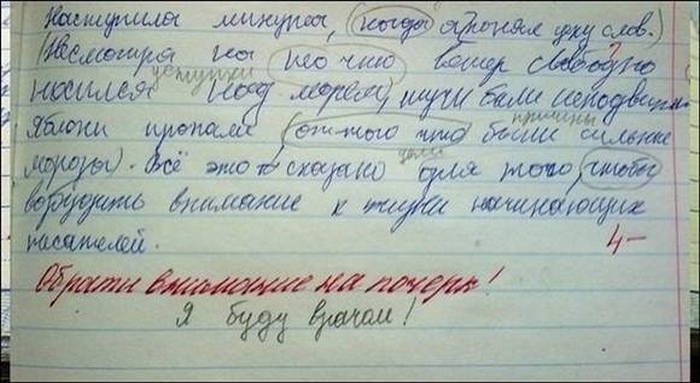 Наступила минута, (когда я понял цену слов.)
(Несмотря на то что ветер свободно
уступки
носился над морем), тучи были неподвижны
причины
Яблони пропали (от того что были сильные
цели
морозы). Всё это сказано для того чтобы
возбудить внимание к жизни начинающих
писателей. 4-
Обрати внимание на почерк!
Я буду врачом!